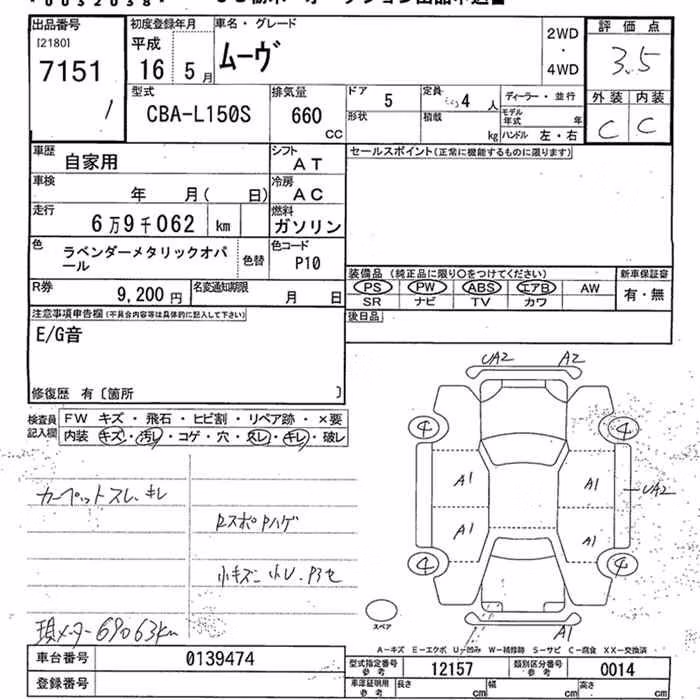 出品番号
[2180]
7151
1
初度登録年月
平成
16 5月
車名・グレード
ムーヴ
2WD
・
4WD
評価点
3.5
外装 内装
C C
型式
CBA-L150S
排気量
660
CC
ドア
5
定員
4人
形状
積載
kg
ディーラー・並行
モデル年式 年
ハンドル 左・右
車歴
自家用
シフト
AT
車検
年 月( 日)
冷房
AC
走行
6万9千062 km
燃料
ガソリン
色
ラベンダーメタリックオパール
色替
色コード
P10
R券
9,200円
名変通知期限
月 日
セールスポイント(正常に機能するものに限ります)
装備品(純正品に限り○をつけてください)
PS PW ABS エアB AW
SR ナビ TV カワ
新車保証書
有・無
後日品
注意事項申告欄(不具合内容等は具体的に記入して下さい)
E/G音
修復歴 有〔箇所 〕
検査員記入欄
FW キズ・飛石・ヒビ割・リペア跡・×要
内装・キズ・汚レ・コゲ・穴・スレ・キレ・破レ
カーペットスレ、キレ
RスポPハゲ
小キズ 小U
現メーター69063km
UA2 A2
4 4
A1 A1
UA2
A1 A1
4 4
A1
スペア
A-キズ E-エクボ U-凹み W-補修跡 S-サビ C-腐食 XX-交換済
車台番号
0139474
登録番号
型式指定番号
参考
12157
類別区分番号
参考
0014
車庫証明用
参考
長さ cm 幅 cm 高さ cm